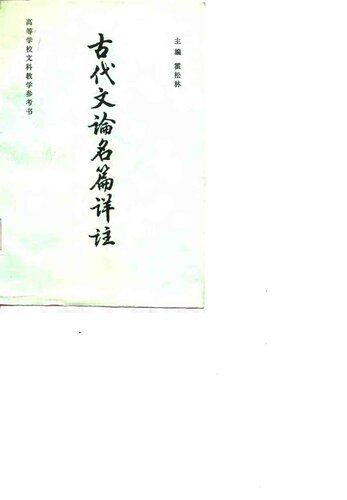 主编 霍松林
古代文论名篇详註
高等学校文科教学参考书